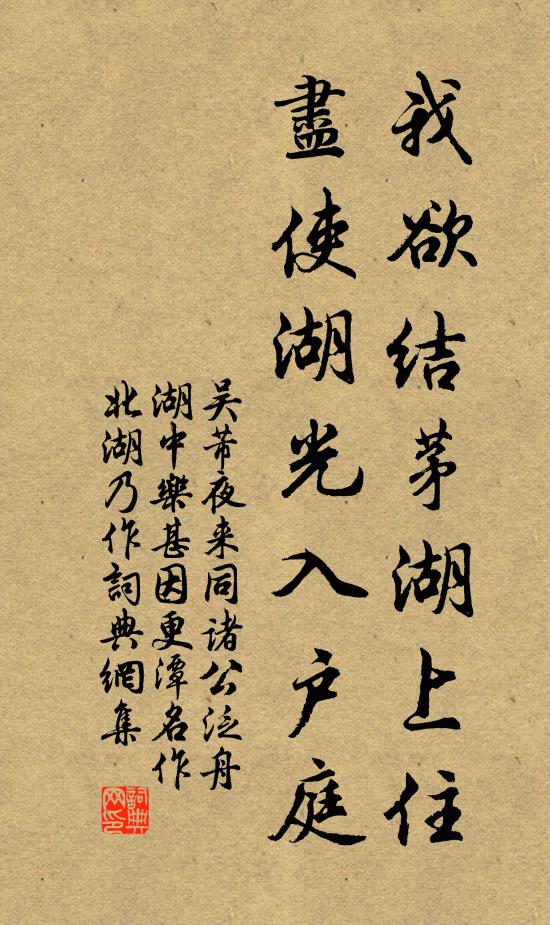 我欲结茅湖上住
盡使湖光入户庭
吴芾夜来同诸公泛舟
湖中樂甚因更潭名作
北湖乃作詞典網集
詞典网印